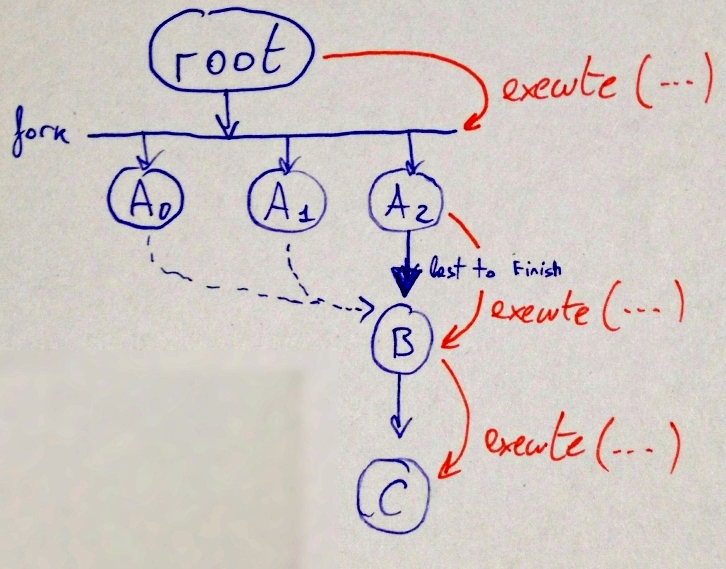 root
execute (---)
fork
A0
A1
A2
last to Finish
execute (---)
B
execute (---)
C